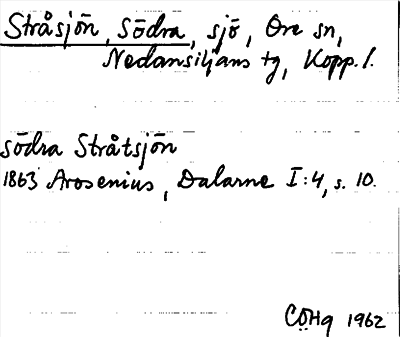 Stråsjön, Södra, sjö, Ore sn,
Nedansiljans tg, Kopp. l.
södra Stråtsjön
1863 Arosenius, Dalarne I:4, s. 10.
CÖHg 1962